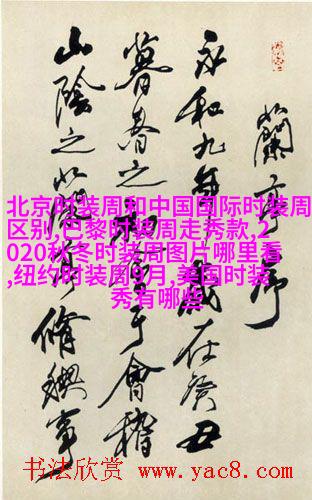 蘭亭序
永和九年歲在癸丑
暮春之初會于會稽
山陰之蘭亭脩禊事
北京时装周和中国国际时装周
区别,巴黎时装周走秀款,2
020秋冬时装周图片哪里看
,纽约时装周9月,美国时装
秀有哪些
书法欣赏 www.yac8.com